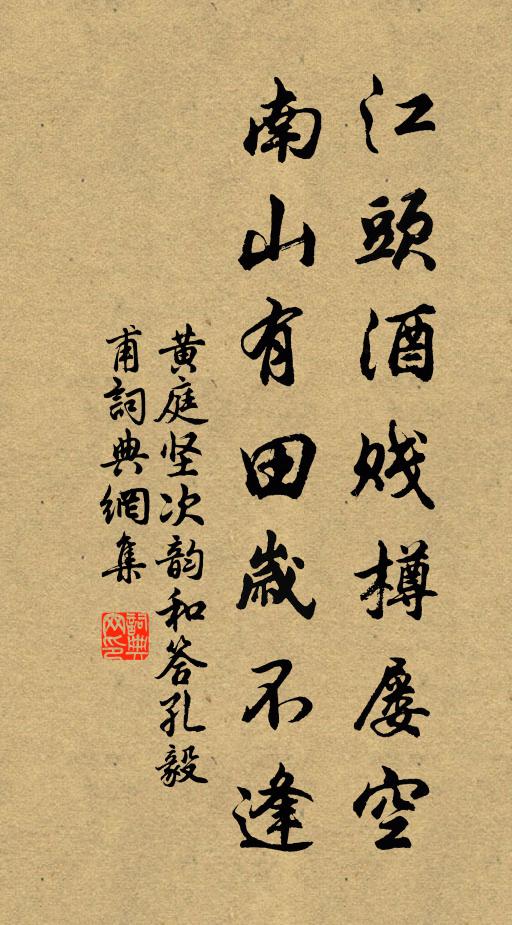 江頭酒賤樽屢空
南山有田歲不逢
黃庭坚次韵和答孔毅
甫詞典網集
詞典網印